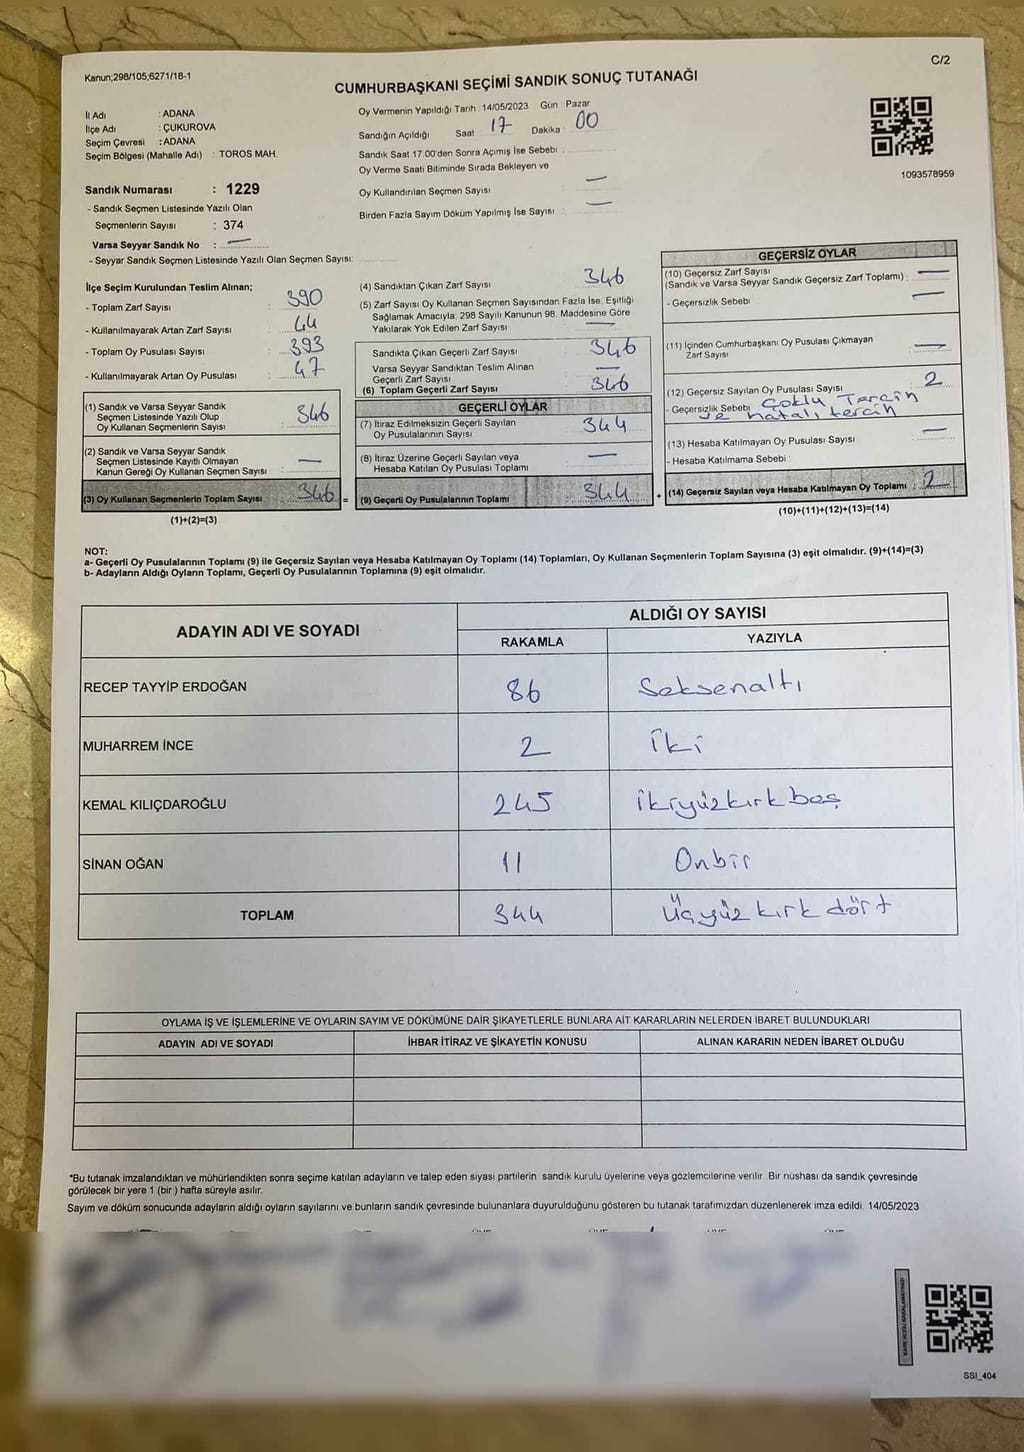 Kanun;298/105;6271/18-1
C/2
CUMHURBAŞKANI SEÇİMİ SANDIK SONUÇ TUTANAĞI
İl Adı : ADANA
İlçe Adı : ÇUKUROVA
Seçim Çevresi : ADANA
Seçim Bölgesi (Mahalle Adı) : TOROS MAH.
Oy Vermenin Yapıldığı Tarih : 14/05/2023 Gün : Pazar
Sandığın Açıldığı Saat 17 Dakika : 00
Sandık Saat 17:00'den Sonra Açımış İse Sebebi :
Oy Verme Saati Bitiminde Sırada Bekleyen ve
Oy Kullandırılan Seçmen Sayısı —
Birden Fazla Sayım Döküm Yapılmış İse Sayısı : —
1093578959
Sandık Numarası : 1229
- Sandık Seçmen Listesinde Yazılı Olan
Seçmenlerin Sayısı : 374
Varsa Seyyar Sandık No : —
- Seyyar Sandık Seçmen Listesinde Yazılı Olan Seçmen Sayısı:
İlçe Seçim Kurulundan Teslim Alınan;
- Toplam Zarf Sayısı : 390
- Kullanılmayarak Artan Zarf Sayısı : 44
- Toplam Oy Pusulası Sayısı : 393
- Kullanılmayarak Artan Oy Pusulası : 47
(1) Sandık ve Varsa Seyyar Sandık
Seçmen Listesinde Yazılı Olup
Oy Kullanan Seçmenlerin Sayısı : 346
(2) Sandık ve Varsa Seyyar Sandık
Seçmen Listesinde Kayıtlı Olmayan
Kanun Gereği Oy Kullanan Seçmen Sayısı : —
(3) Oy Kullanan Seçmenlerin Toplam Sayısı : 346 =
(1)+(2)=(3)
(4) Sandıktan Çıkan Zarf Sayısı : 346
(5) Zarf Sayısı Oy Kullanan Seçmen Sayısından Fazla İse. Eşitliği
Sağlamak Amacıyla; 298 Sayılı Kanunun 98. Maddesine Göre
Yakılarak Yok Edilen Zarf Sayısı : —
Sandıkta Çıkan Geçerli Zarf Sayısı : 346
Varsa Seyyar Sandıktan Teslim Alınan
Geçerli Zarf Sayısı : —
(6) Toplam Geçerli Zarf Sayısı : 346
GEÇERLİ OYLAR
(7) İtiraz Edilmeksizin Geçerli Sayılan
Oy Pusulalarının Sayısı : 344
(8) İtiraz Üzerine Geçerli Sayılan veya
Hesaba Katılan Oy Pusulası Toplamı : —
(9) Geçerli Oy Pusulalarının Toplamı : 344 +
GEÇERSİZ OYLAR
(10) Geçersiz Zarf Sayısı
(Sandık ve Varsa Seyyar Sandık Geçersiz Zarf Toplamı) : —
- Geçersizlik Sebebi : —
(11) İçinden Cumhurbaşkanı Oy Pusulası Çıkmayan
Zarf Sayısı : —
(12) Geçersiz Sayılan Oy Pusulası Sayısı : 2
- Geçersizlik Sebebi Çoklu Tercih
ve hatalı tercih
(13) Hesaba Katılmayan Oy Pusulası Sayısı : —
- Hesaba Katılmama Sebebi :
(14) Geçersiz Sayılan veya Hesaba Katılmayan Oy Toplamı : 2
(10)+(11)+(12)+(13)=(14)
NOT:
a- Geçerli Oy Pusulalarının Toplamı (9) ile Geçersiz Sayılan veya Hesaba Katılmayan Oy Toplamı (14) Toplamları, Oy Kullanan Seçmenlerin Toplam Sayısına (3) eşit olmalıdır. (9)+(14)=(3)
b- Adayların Aldığı Oyların Toplamı, Geçerli Oy Pusulalarının Toplamına (9) eşit olmalıdır.
ADAYIN ADI VE SOYADI
ALDIĞI OY SAYISI
RAKAMLA YAZIYLA
RECEP TAYYİP ERDOĞAN 86 Seksenaltı
MUHARREM İNCE 2 İki
KEMAL KILIÇDAROĞLU 245 ikiyüzkırkbeş
SİNAN OĞAN 11 Onbir
TOPLAM 344 Üçyüzkırkdört
OYLAMA İŞ VE İŞLEMLERİNE VE OYLARIN SAYIM VE DÖKÜMÜNE DAİR ŞİKAYETLERLE BUNLARA AİT KARARLARIN NELERDEN İBARET BULUNDUKLARI
ADAYIN ADI VE SOYADI İHBAR İTİRAZ VE ŞİKAYETİN KONUSU ALINAN KARARIN NEDEN İBARET OLDUĞU
*Bu tutanak imzalandıktan ve mühürlendikten sonra seçime katılan adayların ve talep eden siyasi partilerin sandık kurulu üyelerine veya gözlemcilerine verilir. Bir nüshası da sandık çevresinde
görülecek bir yere 1 (bir) hafta süreyle asılır.
Sayım ve döküm sonucunda adayların aldığı oyların sayılarını ve bunların sandık çevresinde bulunanlara duyurulduğunu gösteren bu tutanak tarafımızdan düzenlenerek imza edildi. 14/05/2023
KARE KODU KARALAMAYINIZ!
SSI_404